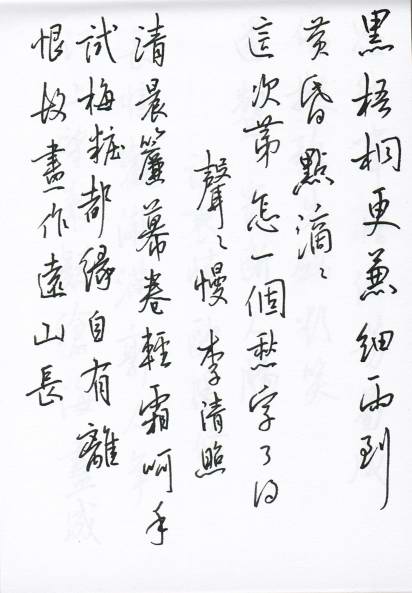 黑梧桐更兼細雨到
黃昏點滴〻
這次第怎一個愁字了得
聲〻慢 李清照
清晨簾幕卷輕霜呵手
試梅粧都緣自有離
恨故畫作遠山長